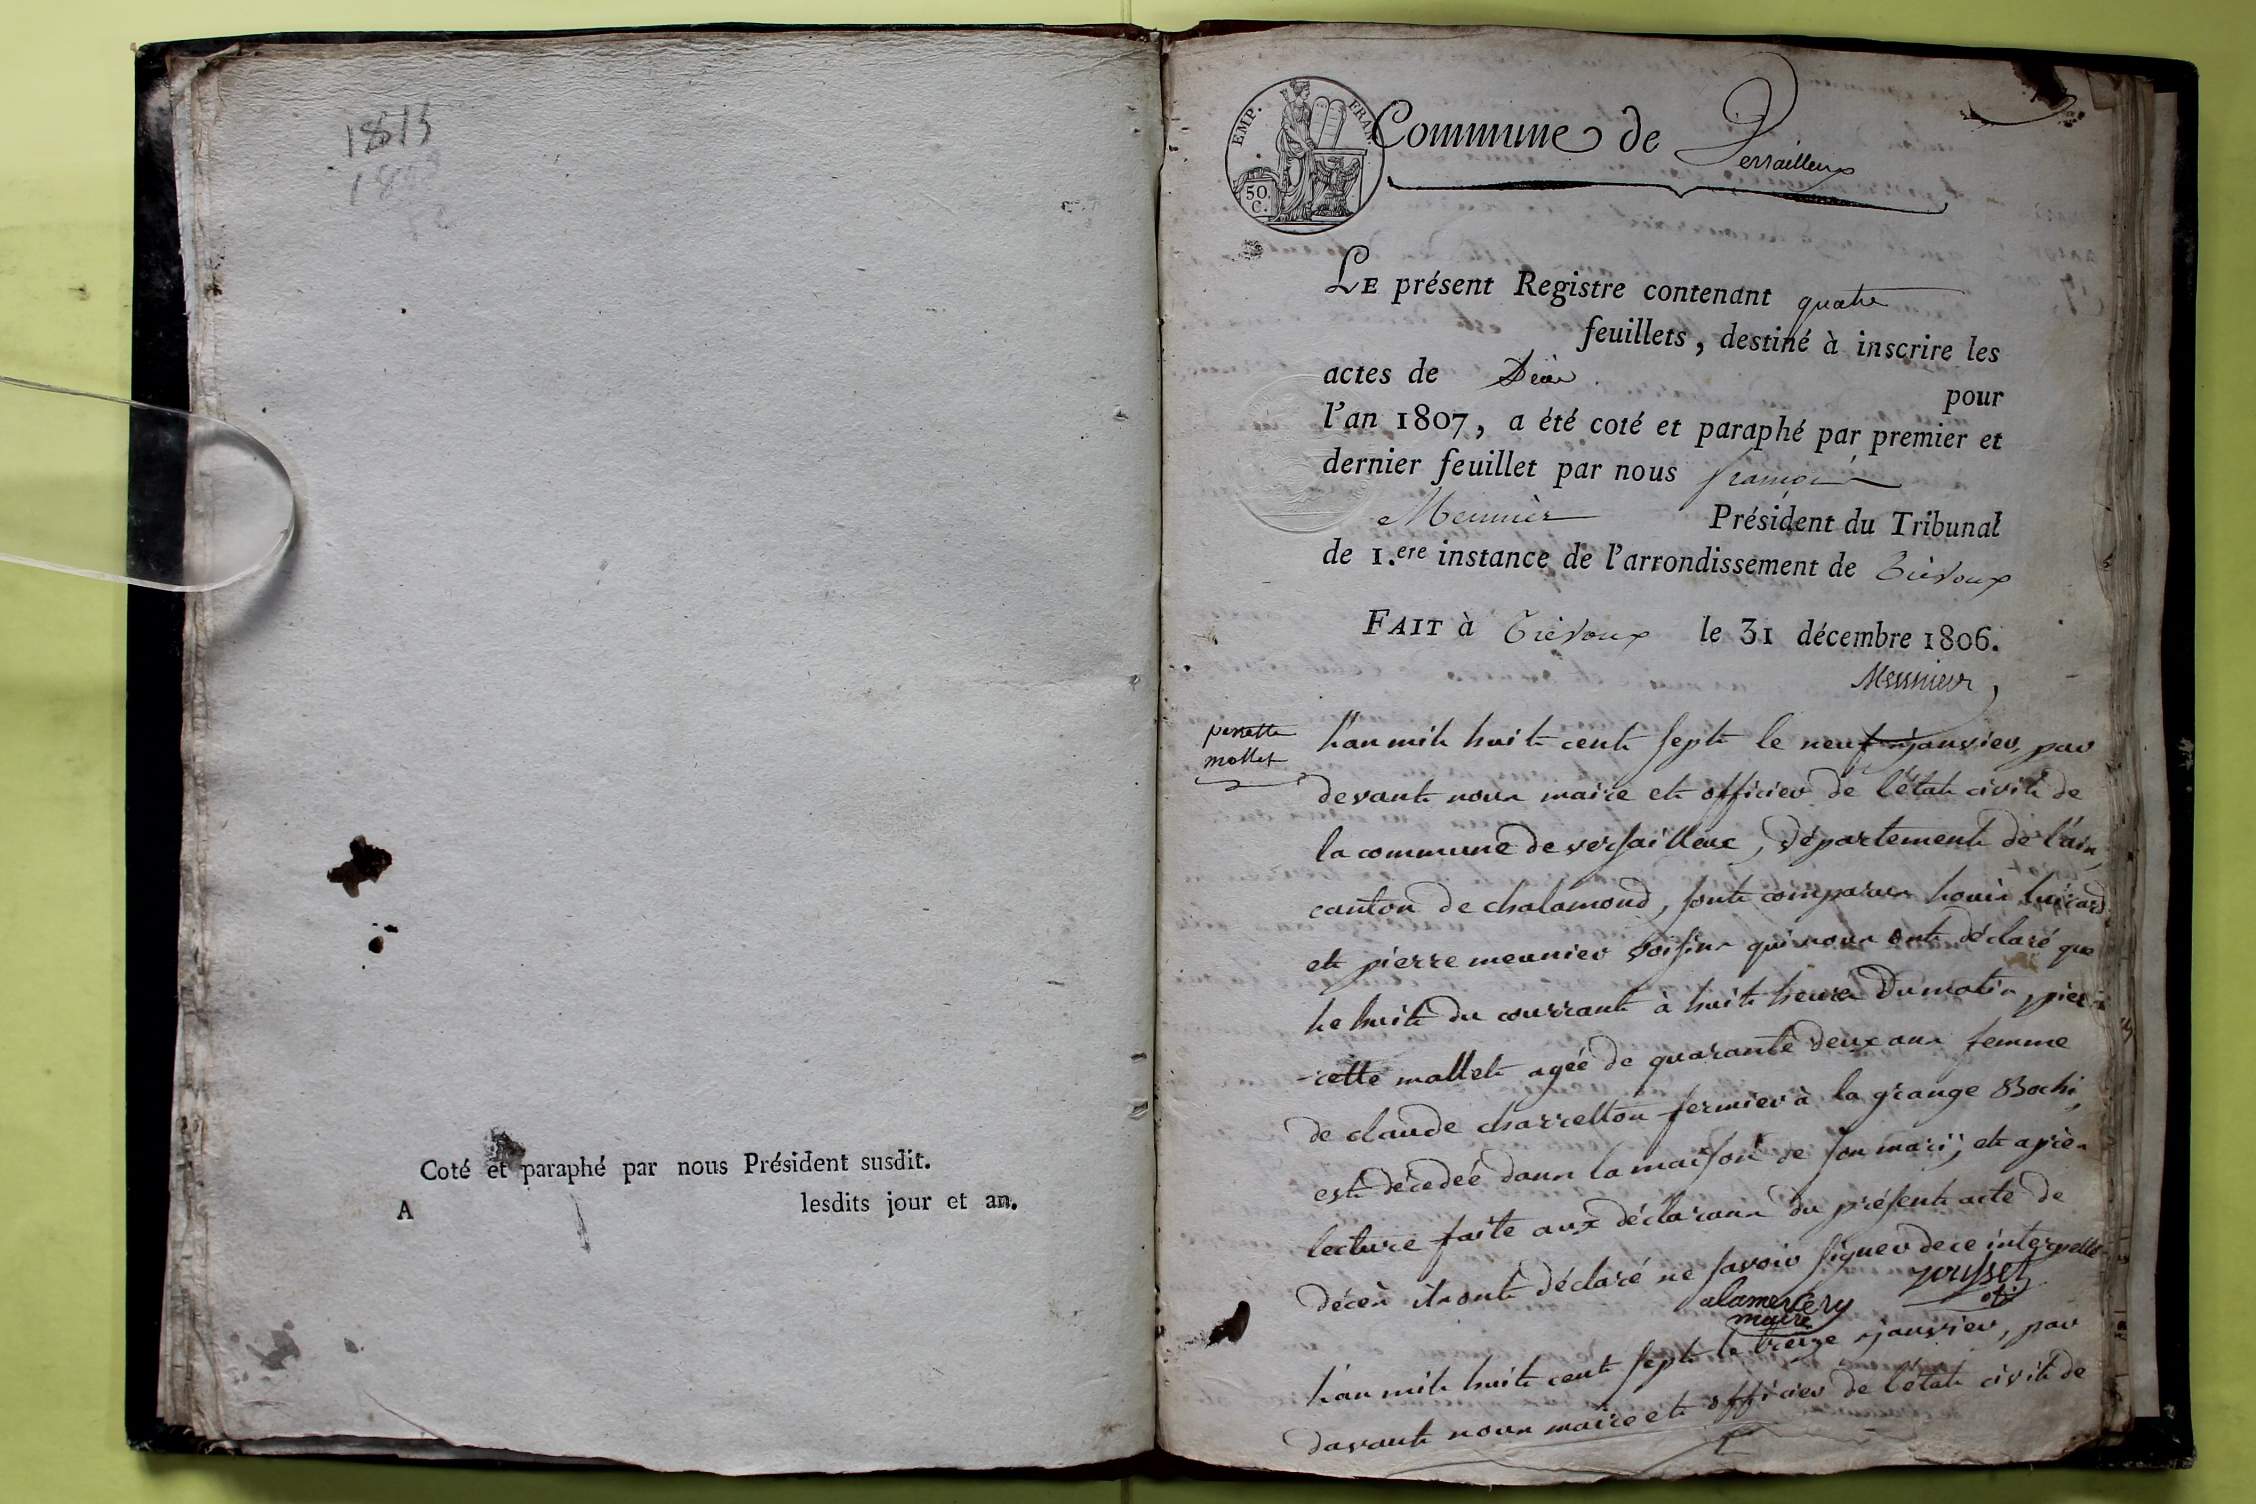 1813
Coté et paraphé par nous Président susdit.
A lesdits jour et an.
EMP. FRAN.
50. C.
Commune de Versailleux
LE présent Registre contenant quatre
feuillets, destiné à inscrire les
actes de Décès pour
l'an 1807, a été coté et paraphé par premier et
dernier feuillet par nous françois
Meunier Président du Tribunal
de 1.ere instance de l'arrondissement de Trévoux
FAIT à Trévoux le 31 décembre 1806.
Messnier
perrette
mollet
L'an mil huit cent sept le neuf janvier, par
devant nous maire et officier de l'état civil de
la commune de versailleux, département de l'ain,
canton de chalamond, sont comparus louis huicard
et pierre meunier voisins qui nous ont déclaré que
le huit du courrant à huit heures du matin, pier
-rette mallet agée de quarante deux ans femme
de claude charretton fermier à la grange Bochi,
est décedée dans la maison de son mari; et après
lecture faite aux déclarans du présent acte de
décès ils ont déclaré ne savoir signer de ce interpellé
alamercery
maire
L'an mil huit cent sept le treize janvier, par
davant nous maire et officier de l'état civil de